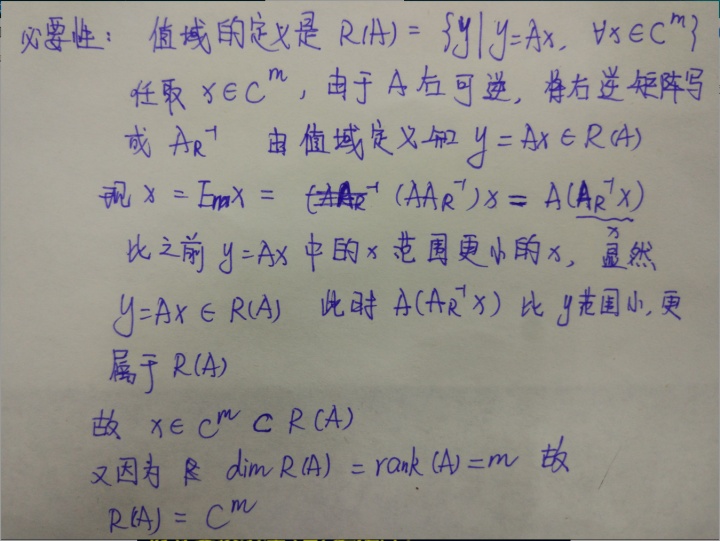 必要性： 值域的定义是 R(A) = {y | y=Ax, ∀x∈C^m}
任取 x∈C^m, 由于 A 右可逆, 将右逆矩阵写
成 A_R^{-1} 由值域定义知 y = Ax ∈ R(A)
现 x = E_m x = (AA_R^{-1})x = A(A_R^{-1}x)
x
比之前 y=Ax 中的 x 范围更小的 x, 显然
y=Ax ∈ R(A) 此时 A(A_R^{-1}x) 比 y范围小, 更
属于 R(A)
故 x∈ C^m ⊂ R(A)
又因为 dim R(A) = rank(A) = m 故
R(A) = C^m